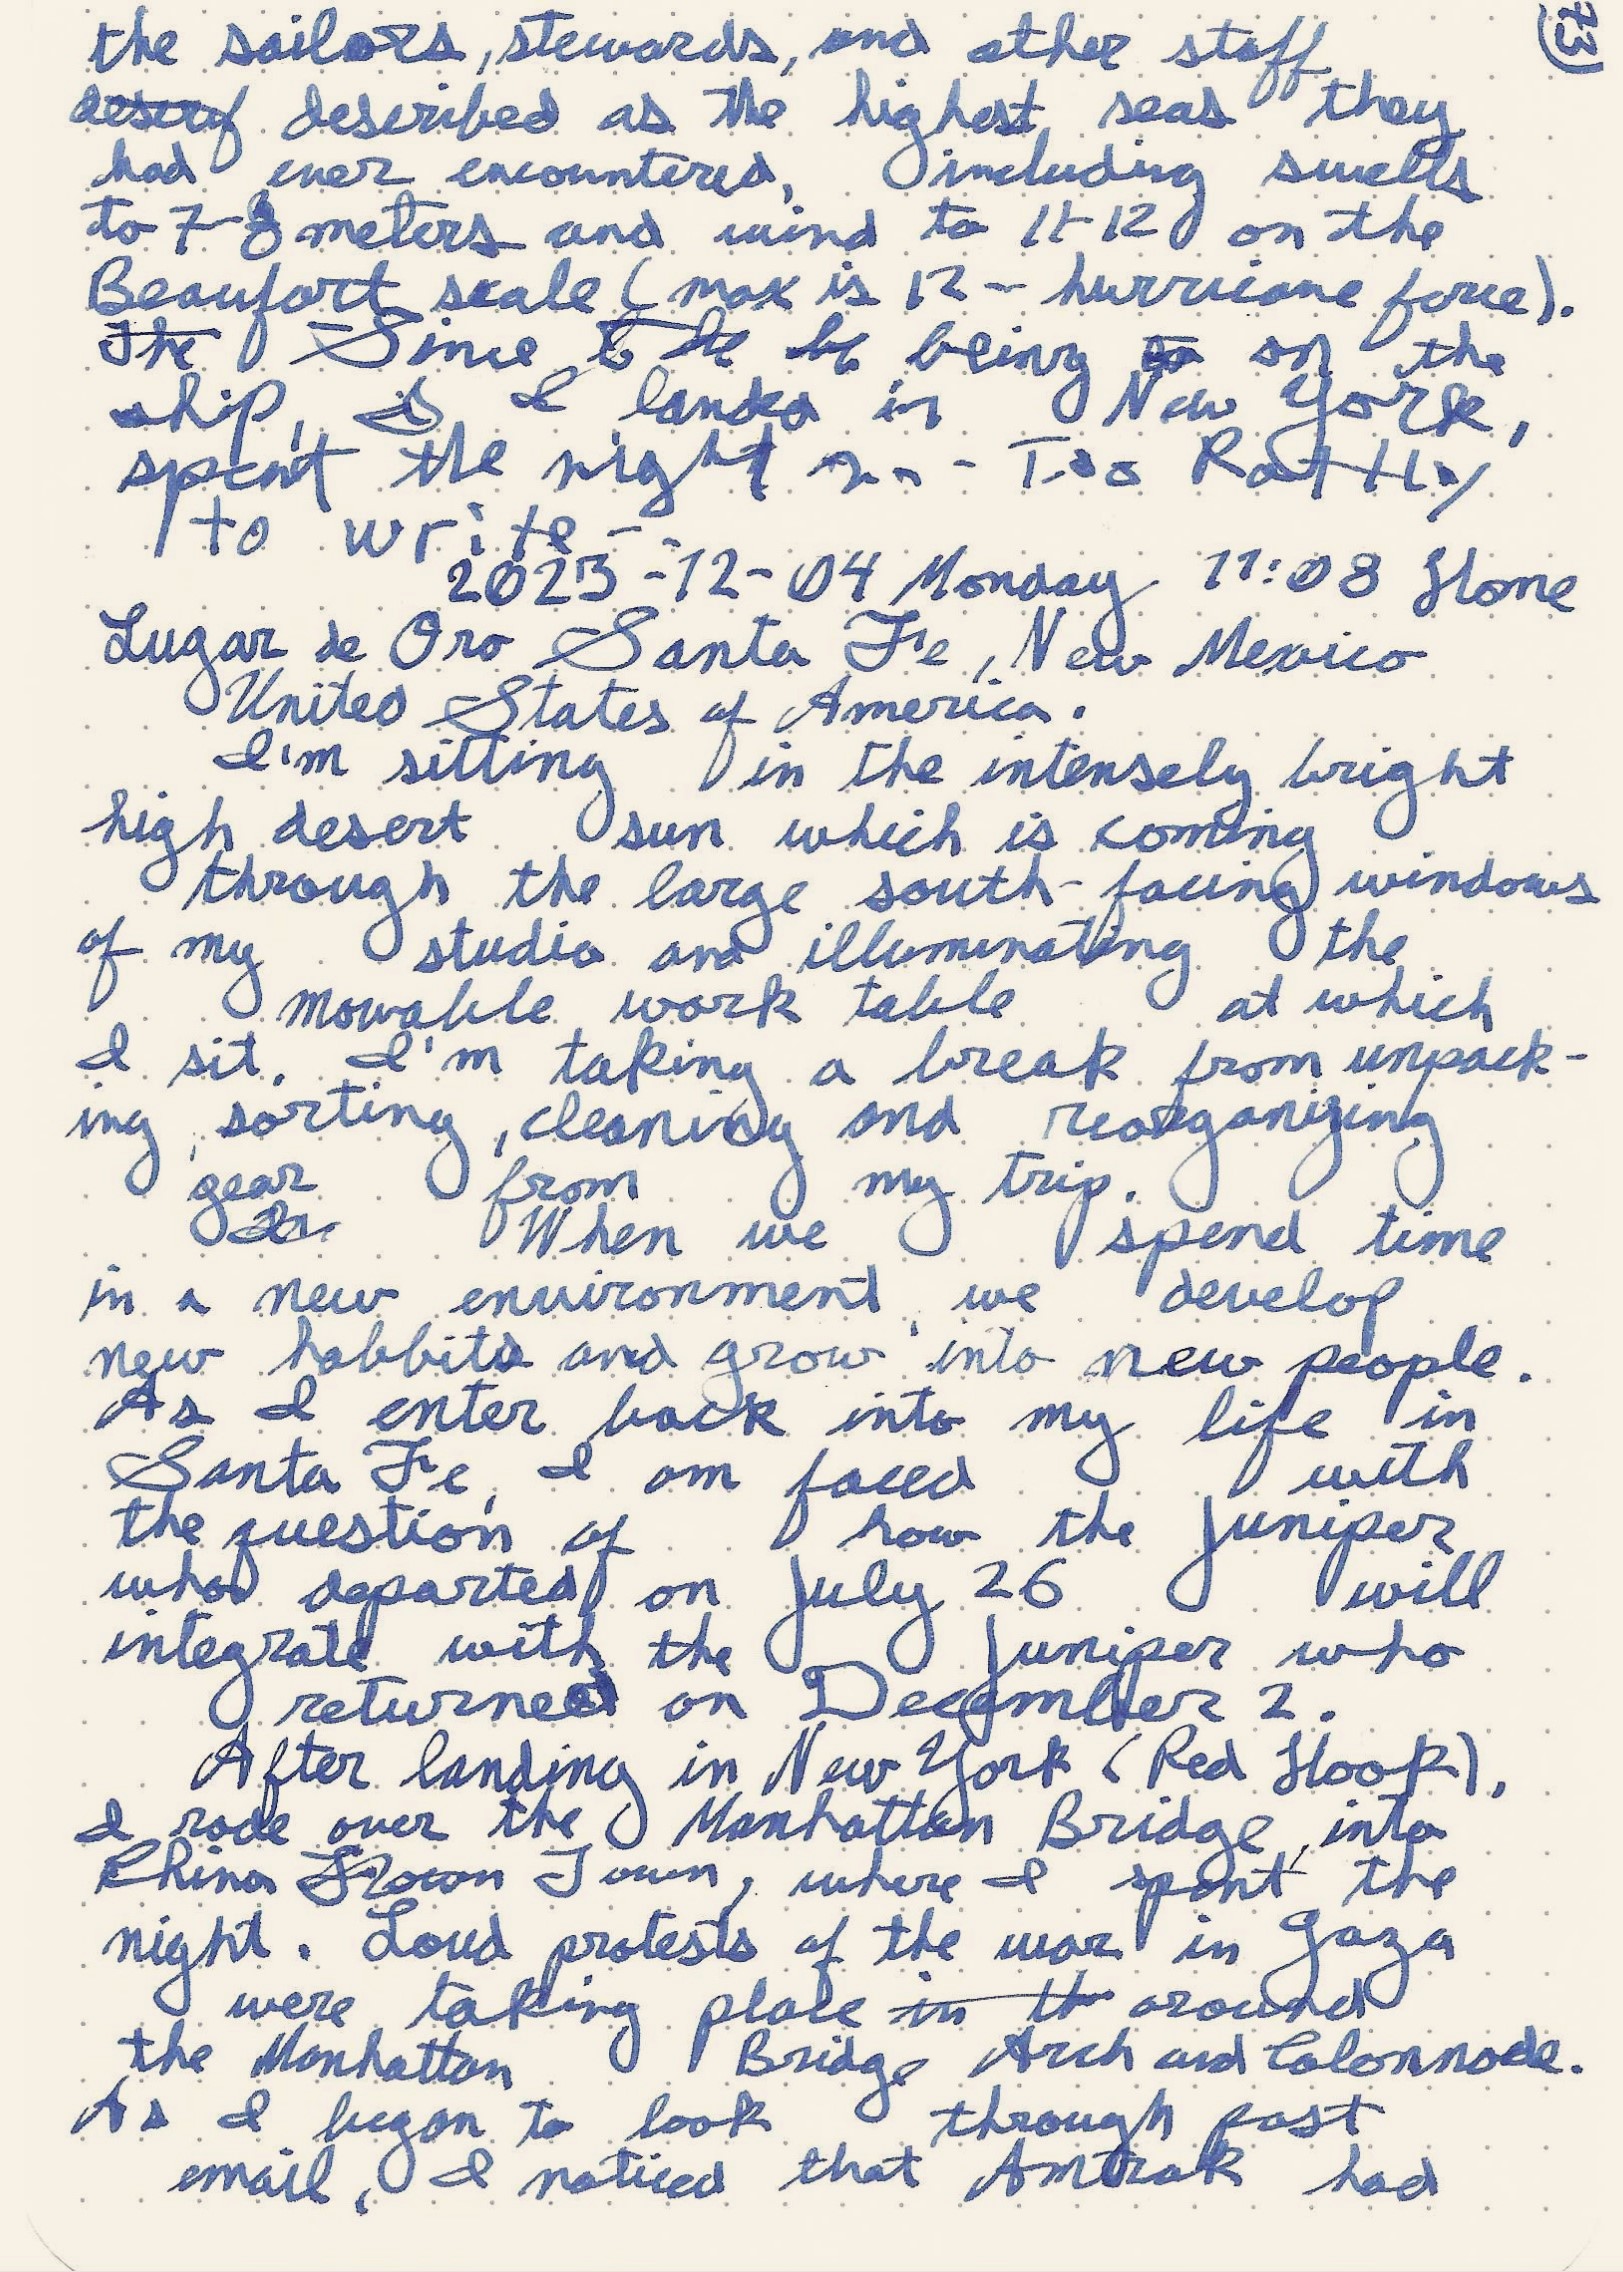 73
the sailors, stewards, and other staff
descrif described as the highest seas they
had ever encountered, including swells
to 7-8 meters and wind to 11-12 on the
Beaufort scale (max is 12 -- hurricane force).
The Since being on the
ship, I landed in New York,
spent the night in - - Too Rattly
to write - -
2023-12-04 Monday 11:08 Home
Lugar de Oro Santa Fe, New Mexico
United States of America.
I'm sitting in the intensely bright
high desert sun which is coming
through the large south-facing windows
of my studio and illuminating the
movable work table at which
I sit. I'm taking a break from unpack-
ing, sorting, cleaning and reorganizing
gear from my trip.
When we spend time
in a new environment, we develop
new habbits and grow into new people.
As I enter back into my life in
Santa Fe, I am faced with
the question of how the Juniper
who departed on July 26 will
integrate with the Juniper who
returned on December 2.
After landing in New York (Red Hook),
I rode over the Manhattan Bridge, into
China Town, where I spent the
night. Loud protests of the war in Gaza
were taking place in th around
the Manhattan Bridge Arch and Colonnode.
As I began to look through past
email, I noticed that Amtrak had